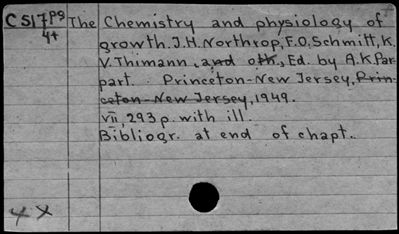 C 517 pg The Chemistry and physiology of
4+ growth. J.H. Northrop, F.O. Schmitt, K.
V. Thimann, and oth., Ed. by A.K. Par-
part. Princeton-New Jersey, Prin-
ceton-New Jersey, 1949.
VII, 293 p. with ill.
Bibliogr. at end of chapt.
4 X